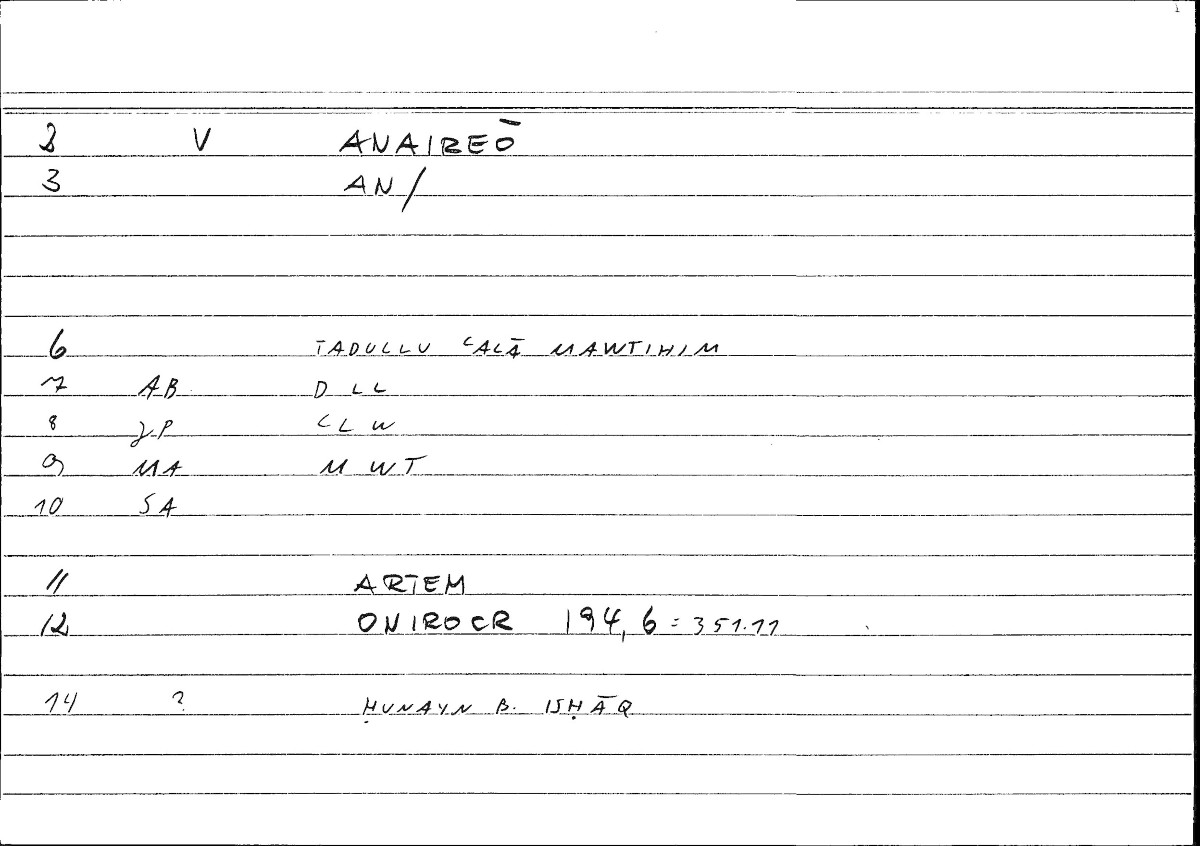 1
2 V ANAIREŌ
3 AN/
6 TADULLU ʿALĀ MAWTIHIM
7 AB DLL
8 JP ʿLW
9 MA MWT
10 SA
11 ARTEM
12 ONIROCR 194,6 = 351.11
14 ? ḤUNAYN B. ISḤĀQ